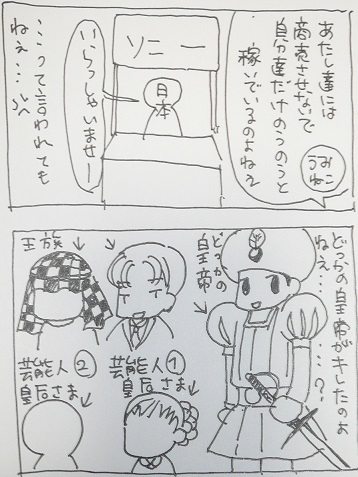 あたし達には
商売させないで
自分達だけのうのうと
稼いでいるのよねぇ
うみ
ねこ
ソニー
日本
いらっしゃいませー
…って言われても
ねぇ…
どっかの皇帝がキレたのよ
ねぇ……?
どっかの
皇帝
王族
芸能人①
皇后さま
芸能人②
皇后さま